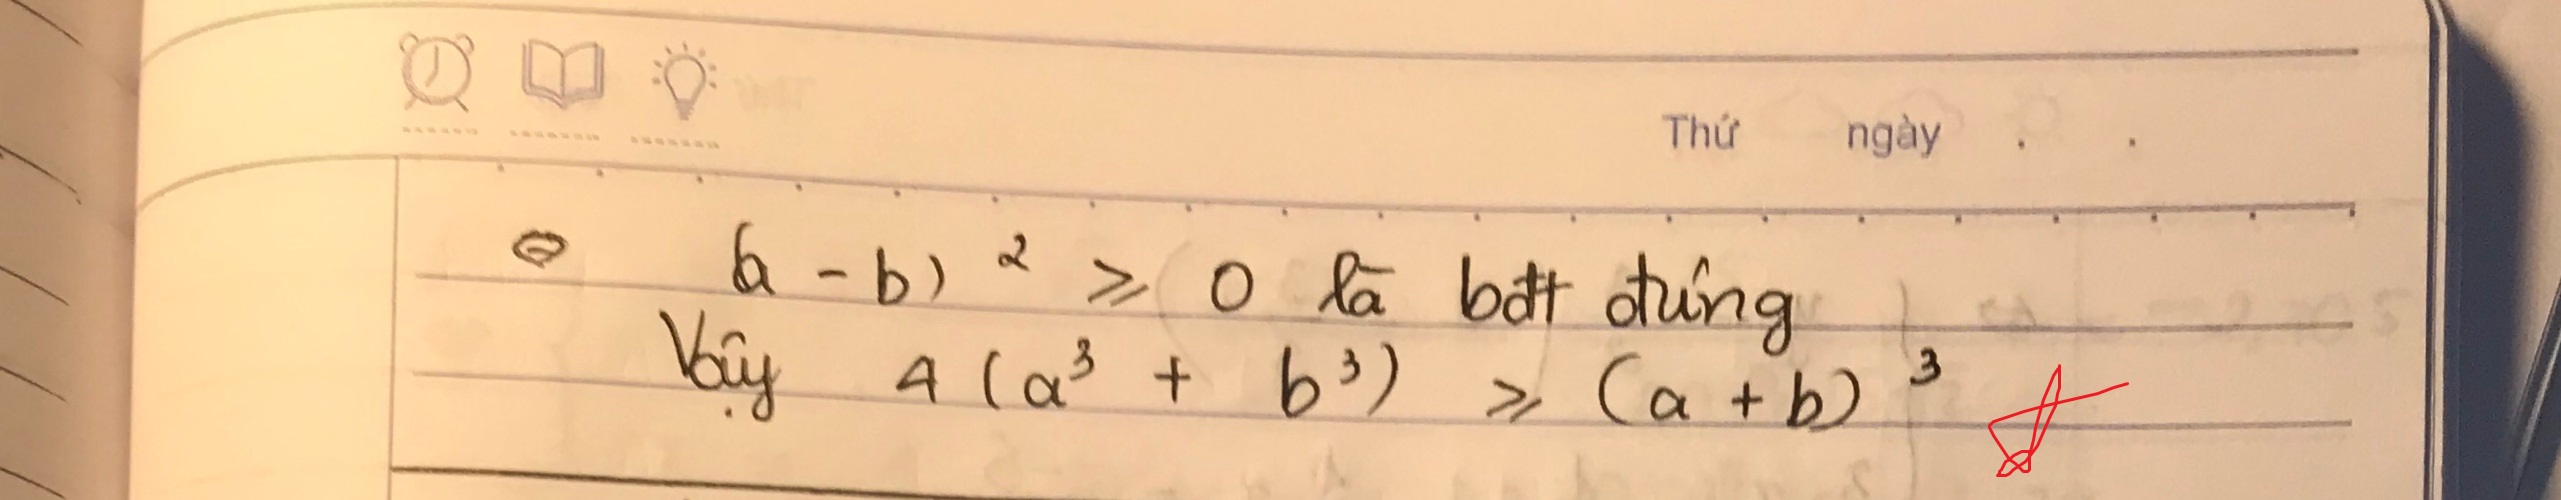 Thứ ngày . .
⇔ (a - b)² ≥ 0 là bđt đúng
Vậy 4 (a³ + b³) ≥ (a + b)³